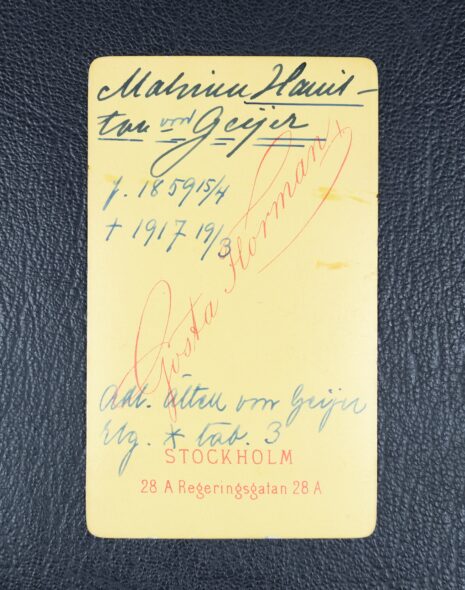 Malvina Hamil-
ton von Geijer
f. 1859 15/4
† 1917 19/3
Gösta Florman
Adl. ätten von Geijer
Elg. * tab. 3
STOCKHOLM
28 A Regeringsgatan 28 A